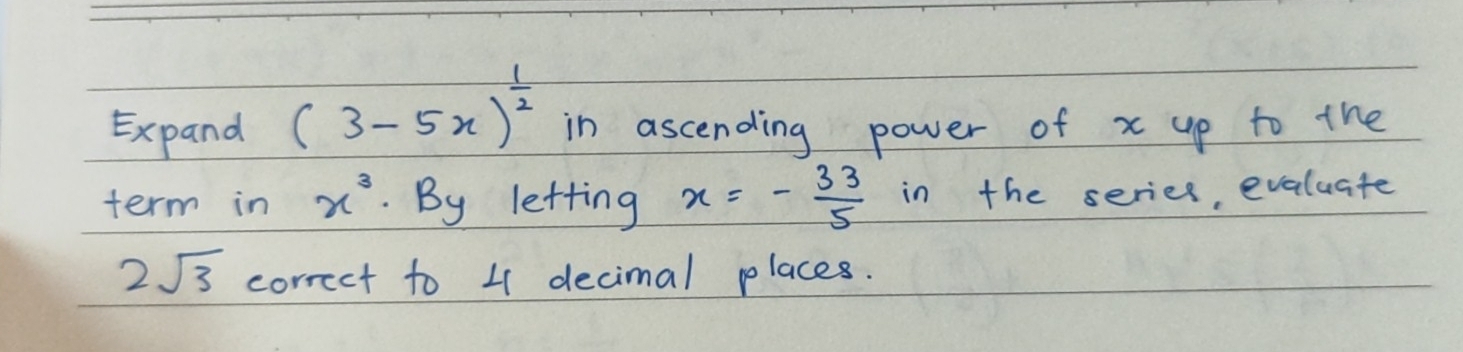 Expand (3-5x)^{1/2} in ascending power of x up to the
term in x³. By letting x = -33/5 in the series, evaluate
2√3 correct to 4 decimal places.